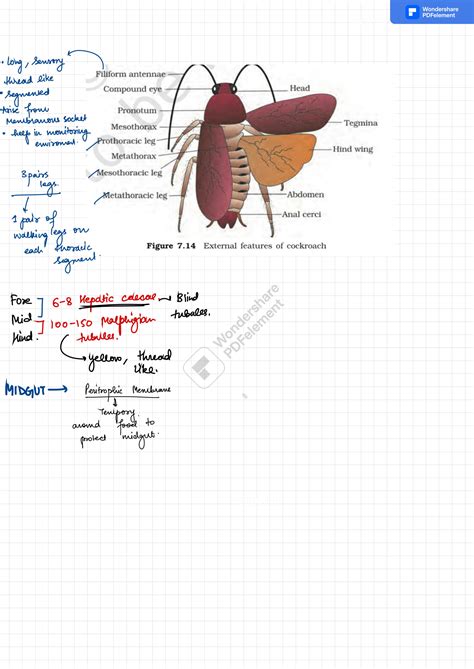 Wondershare
PDFelement
• long, sensory
thread like
• segmented
arise from
Membranous socket
• help in monitoring
enviroment.
3 pairs
legs
1 pair of
walking legs on
each thoracic
segment.
Filiform antennae
Compound eye
Pronotum
Mesothorax
Prothoracic leg
Metathorax
Mesothoracic leg
Metathoracic leg
Head
Tegmina
Hind wing
Abdomen
Anal cerci
Figure 7.14 External features of cockroach
Fore
Mid
Hind.
6-8 Hepatic caecae → Blind
tubules.
100-150 Malphigian
tubules.
yellow, thread
like.
MIDGUT → Peritrophic Membrane
Tempory
around food to
protect midgut.
Wondershare
PDFelement